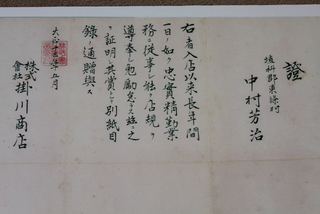 證
埴科郡東條村
中村芳治
右者入店以来長年間
一日ノ如ク忠實精勤業
務ニ従事シ能ク店規ヲ
遵奉シ勉勵怠ラス茲ニ之
ヲ証明シ其賞トシテ別紙目
録ノ通贈與ス
大正十五年五月
株式會社掛川商店